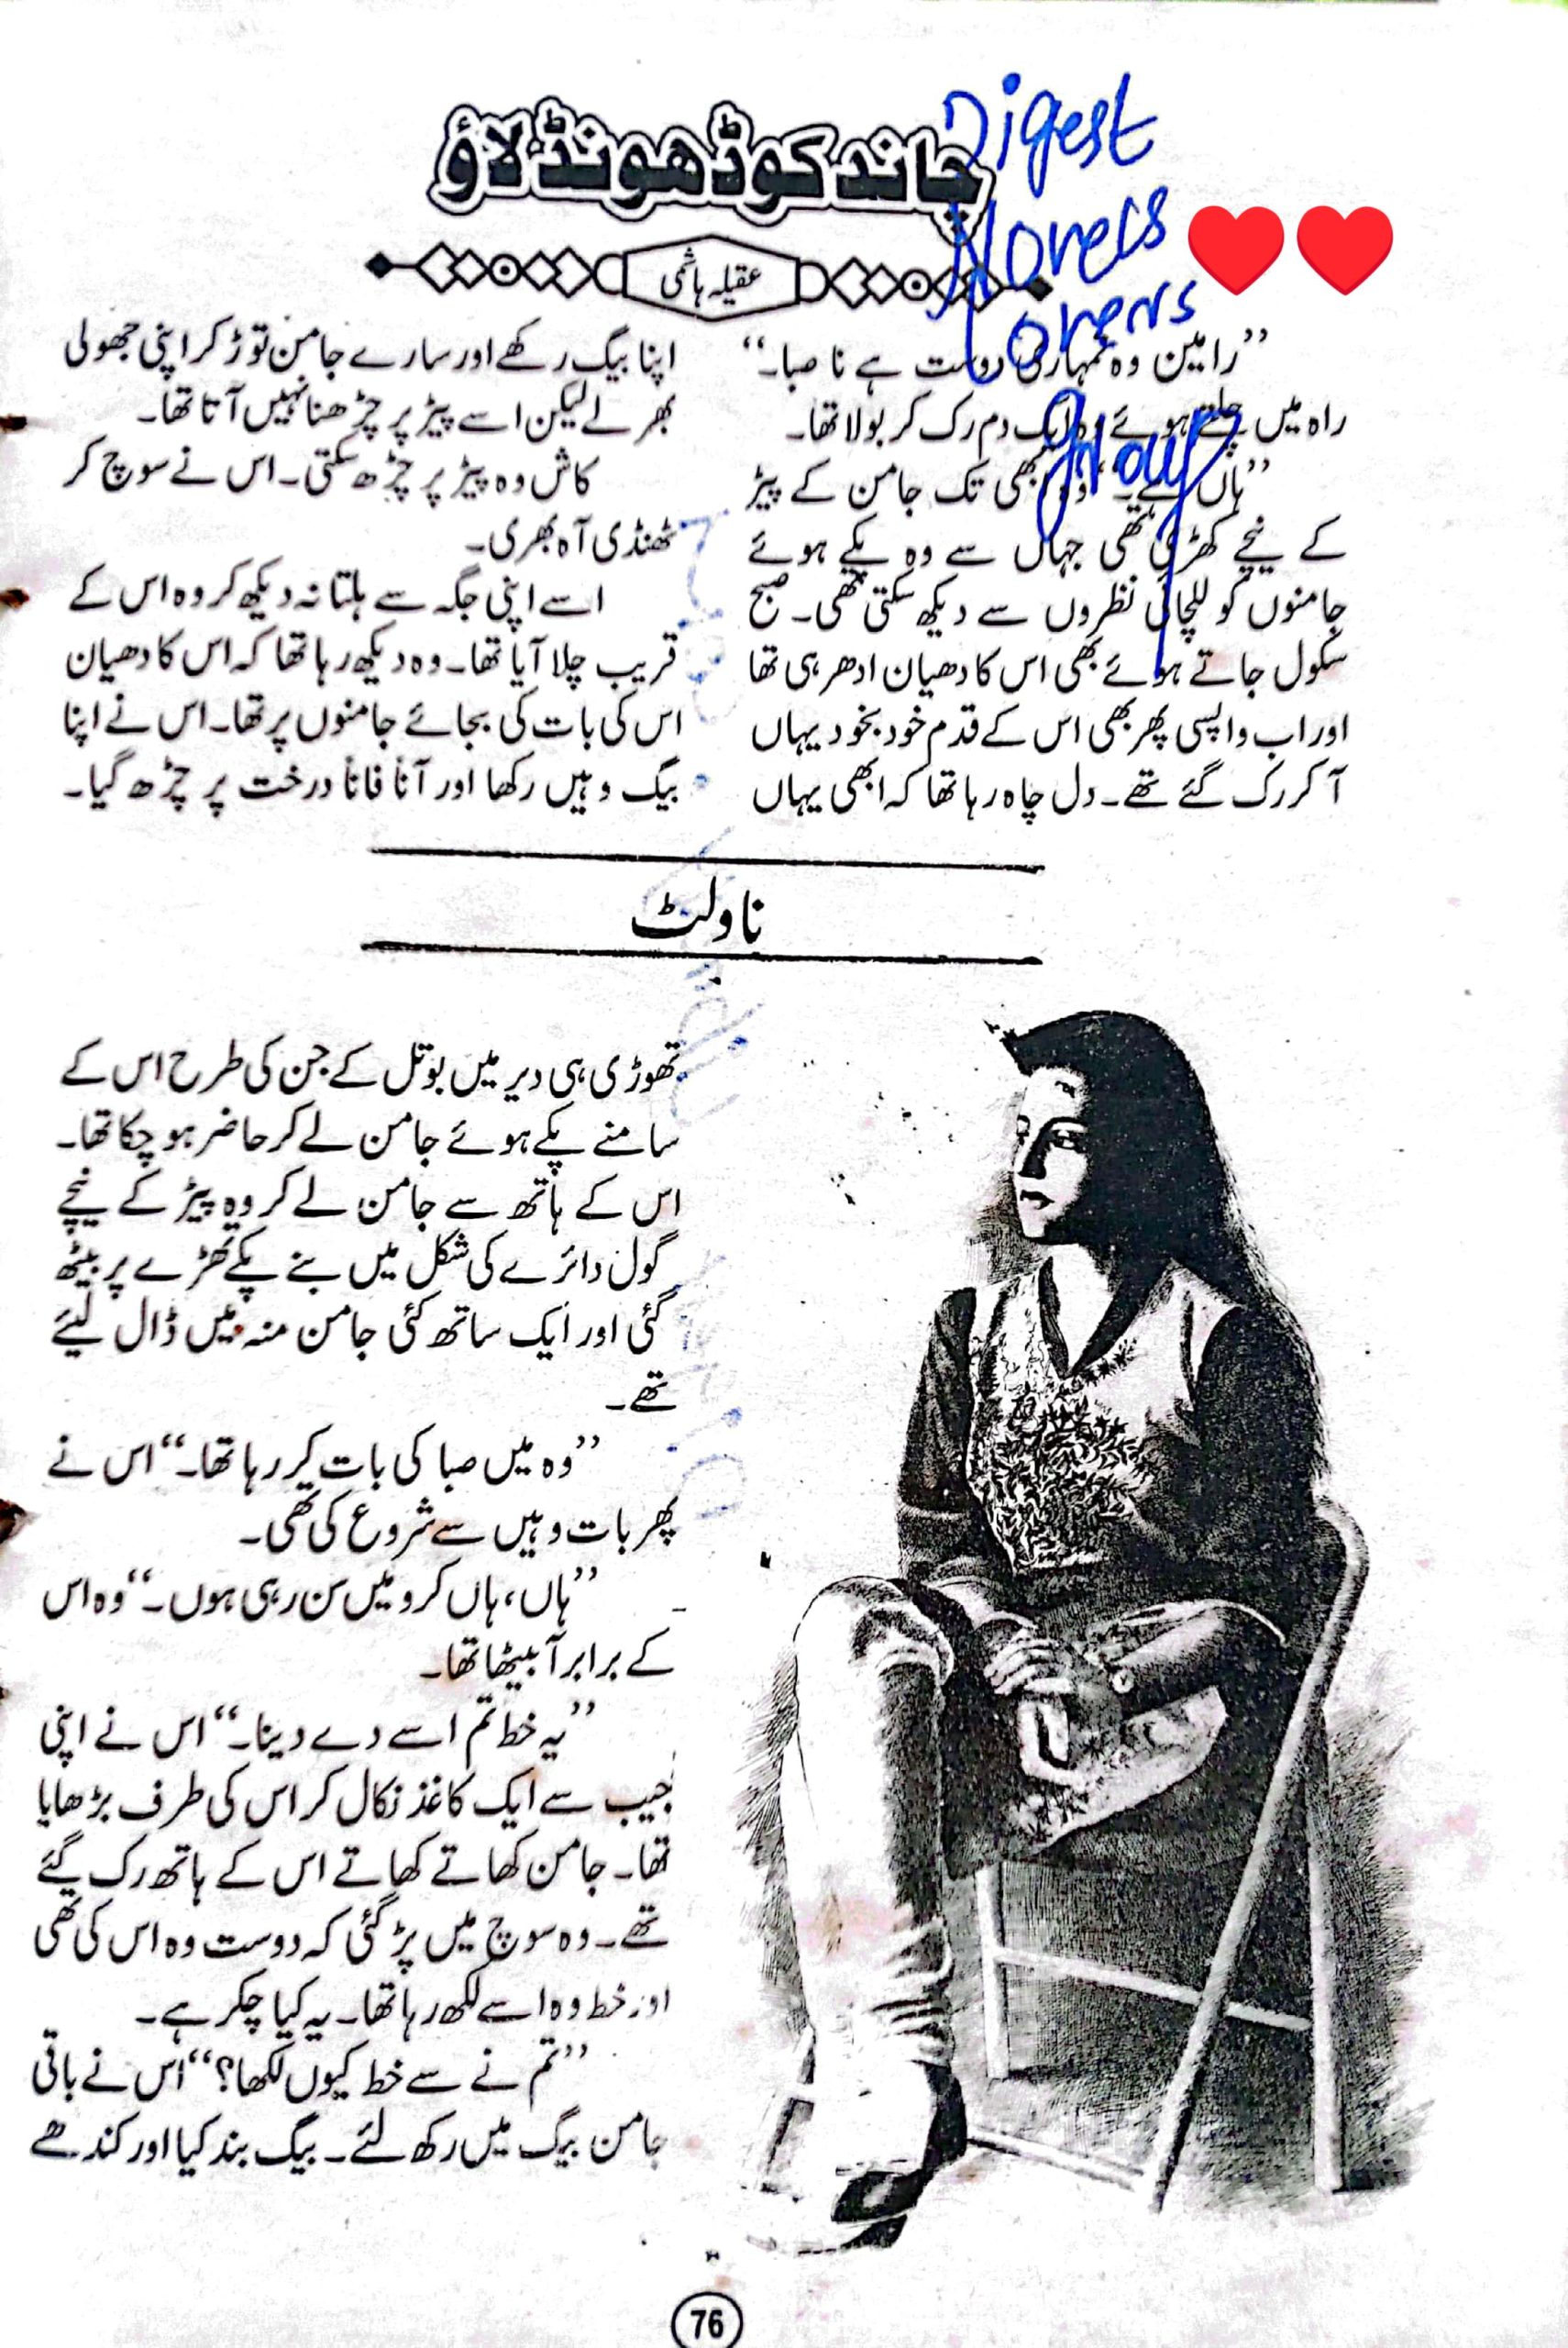 چاند کو ڈھونڈ لاؤ
عقیلہ ہاشمی
Digest
Novels
Lovers
group
❤❤
’’رامین وہ تمہاری دوست ہے نا صبا۔‘‘
راہ میں چلتے ہوئے وہ ایک دم رک کر بولا تھا۔
’’ہاں ہے۔‘‘ وہ ابھی تک جامن کے پیڑ
کے نیچے کھڑی تھی جہاں سے وہ پکے ہوئے
جامنوں کو للچائی نظروں سے دیکھ سکتی تھی۔ صبح
سکول جاتے ہوئے بھی اس کا دھیان ادھر ہی تھا
اور اب واپسی پھر بھی اس کے قدم خود بخود یہاں
آ کر رک گئے تھے۔ دل چاہ رہا تھا کہ ابھی یہاں
اپنا بیگ رکھے اور سارے جامن توڑ کر اپنی جھولی
بھر لے لیکن اسے پیڑ پر چڑھنا نہیں آتا تھا۔
کاش وہ پیڑ پر چڑھ سکتی۔ اس نے سوچ کر
ٹھنڈی آہ بھری۔
اسے اپنی جگہ سے ہلتا نہ دیکھ کر وہ اس کے
قریب چلا آیا تھا۔ وہ دیکھ رہا تھا کہ اس کا دھیان
اس کی بات کی بجائے جامنوں پر تھا۔ اس نے اپنا
بیگ وہیں رکھا اور آناً فاناً درخت پر چڑھ گیا۔
ناولٹ
تھوڑی ہی دیر میں بوتل کے جن کی طرح اس کے
سامنے پکے ہوئے جامن لے کر حاضر ہو چکا تھا۔
اس کے ہاتھ سے جامن لے کر وہ پیڑ کے نیچے
گول دائرے کی شکل میں بنے پکے تھڑے پر بیٹھ
گئی اور ایک ساتھ کئی جامن منہ میں ڈال لیئے
تھے۔
’’وہ میں صبا کی بات کر رہا تھا۔‘‘ اس نے
پھر بات وہیں سے شروع کی تھی۔
’’ہاں، ہاں کرو میں سن رہی ہوں۔‘‘ وہ اس
کے برابر آ بیٹھا تھا۔
’’یہ خط تم اسے دے دینا۔‘‘ اس نے اپنی
جیب سے ایک کاغذ نکال کر اس کی طرف بڑھایا
تھا۔ جامن کھاتے کھاتے اس کے ہاتھ رک گئے
تھے۔ وہ سوچ میں پڑ گئی کہ دوست وہ اس کی تھی
اور خط وہ اسے لکھ رہا تھا۔ یہ کیا چکر ہے۔
’’تم نے سے خط کیوں لکھا؟‘‘ اس نے باقی
جامن بیگ میں رکھ لئے۔ بیگ بند کیا اور کندھے
76